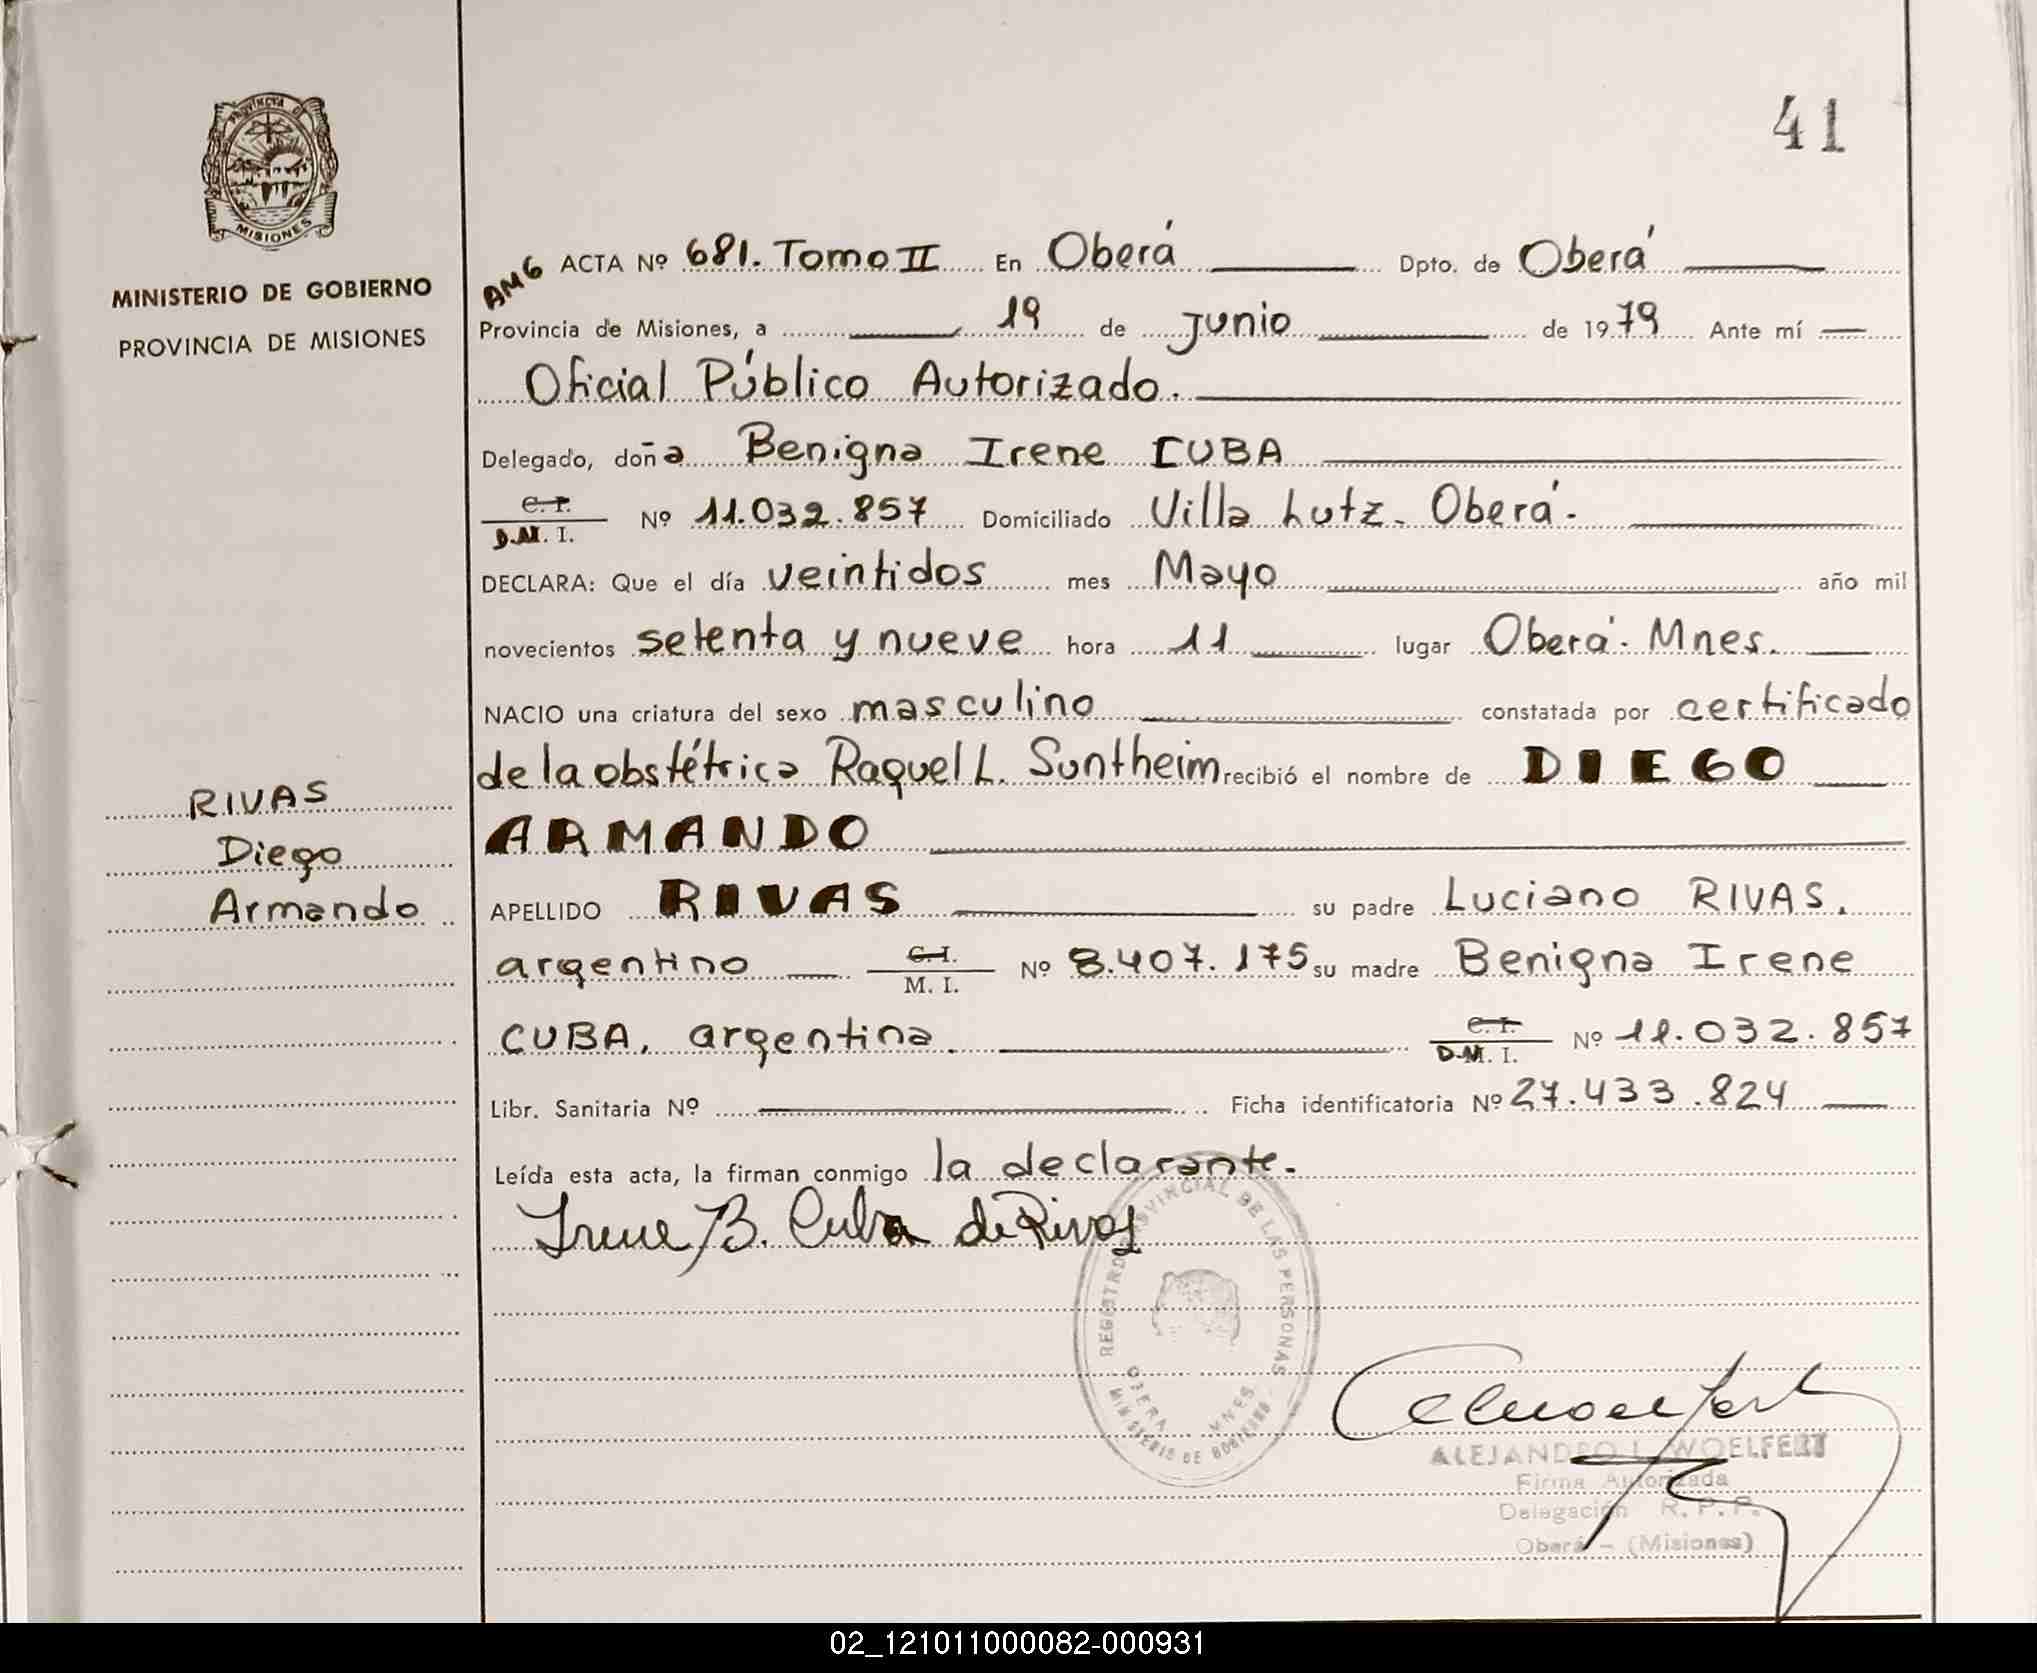 41
PROVINCIA DE
MISIONES
MINISTERIO DE GOBIERNO
PROVINCIA DE MISIONES
RIVAS
Diego
Armando
AMG ACTA Nº 681. Tomo II En Oberá Dpto. de Oberá
Provincia de Misiones, a 19 de Junio de 1979 Ante mí
Oficial Público Autorizado.
Delegado, doña Benigna Irene CUBA
C. I.
D.M. I. Nº 11.032.857 Domiciliado Villa Lutz. Oberá.
DECLARA: Que el día veintidos mes Mayo año mil
novecientos setenta y nueve hora 11 lugar Oberá. Mnes.
NACIO una criatura del sexo masculino constatada por certificado
de la obstétrica Raquel L. Suntheim recibió el nombre de DIEGO
ARMANDO
APELLIDO RIVAS su padre Luciano RIVAS,
argentino C. I.
M. I. Nº 8.407.175 su madre Benigna Irene
CUBA, argentina. C. I.
D.M. I. Nº 11.032.857
Libr. Sanitaria Nº Ficha identificatoria Nº 27.433.824
Leída esta acta, la firman conmigo la declarante.
Irene B. Cuba de Rivas
REGISTRO PROVINCIAL DE LAS PERSONAS
OBERA MNES.
MINISTERIO DE GOBIERNO
ALEJANDRO L. WOELFERT
Firma Autorizada
Delegación R. P. P.
Oberá - (Misiones)
02_121011000082-000931